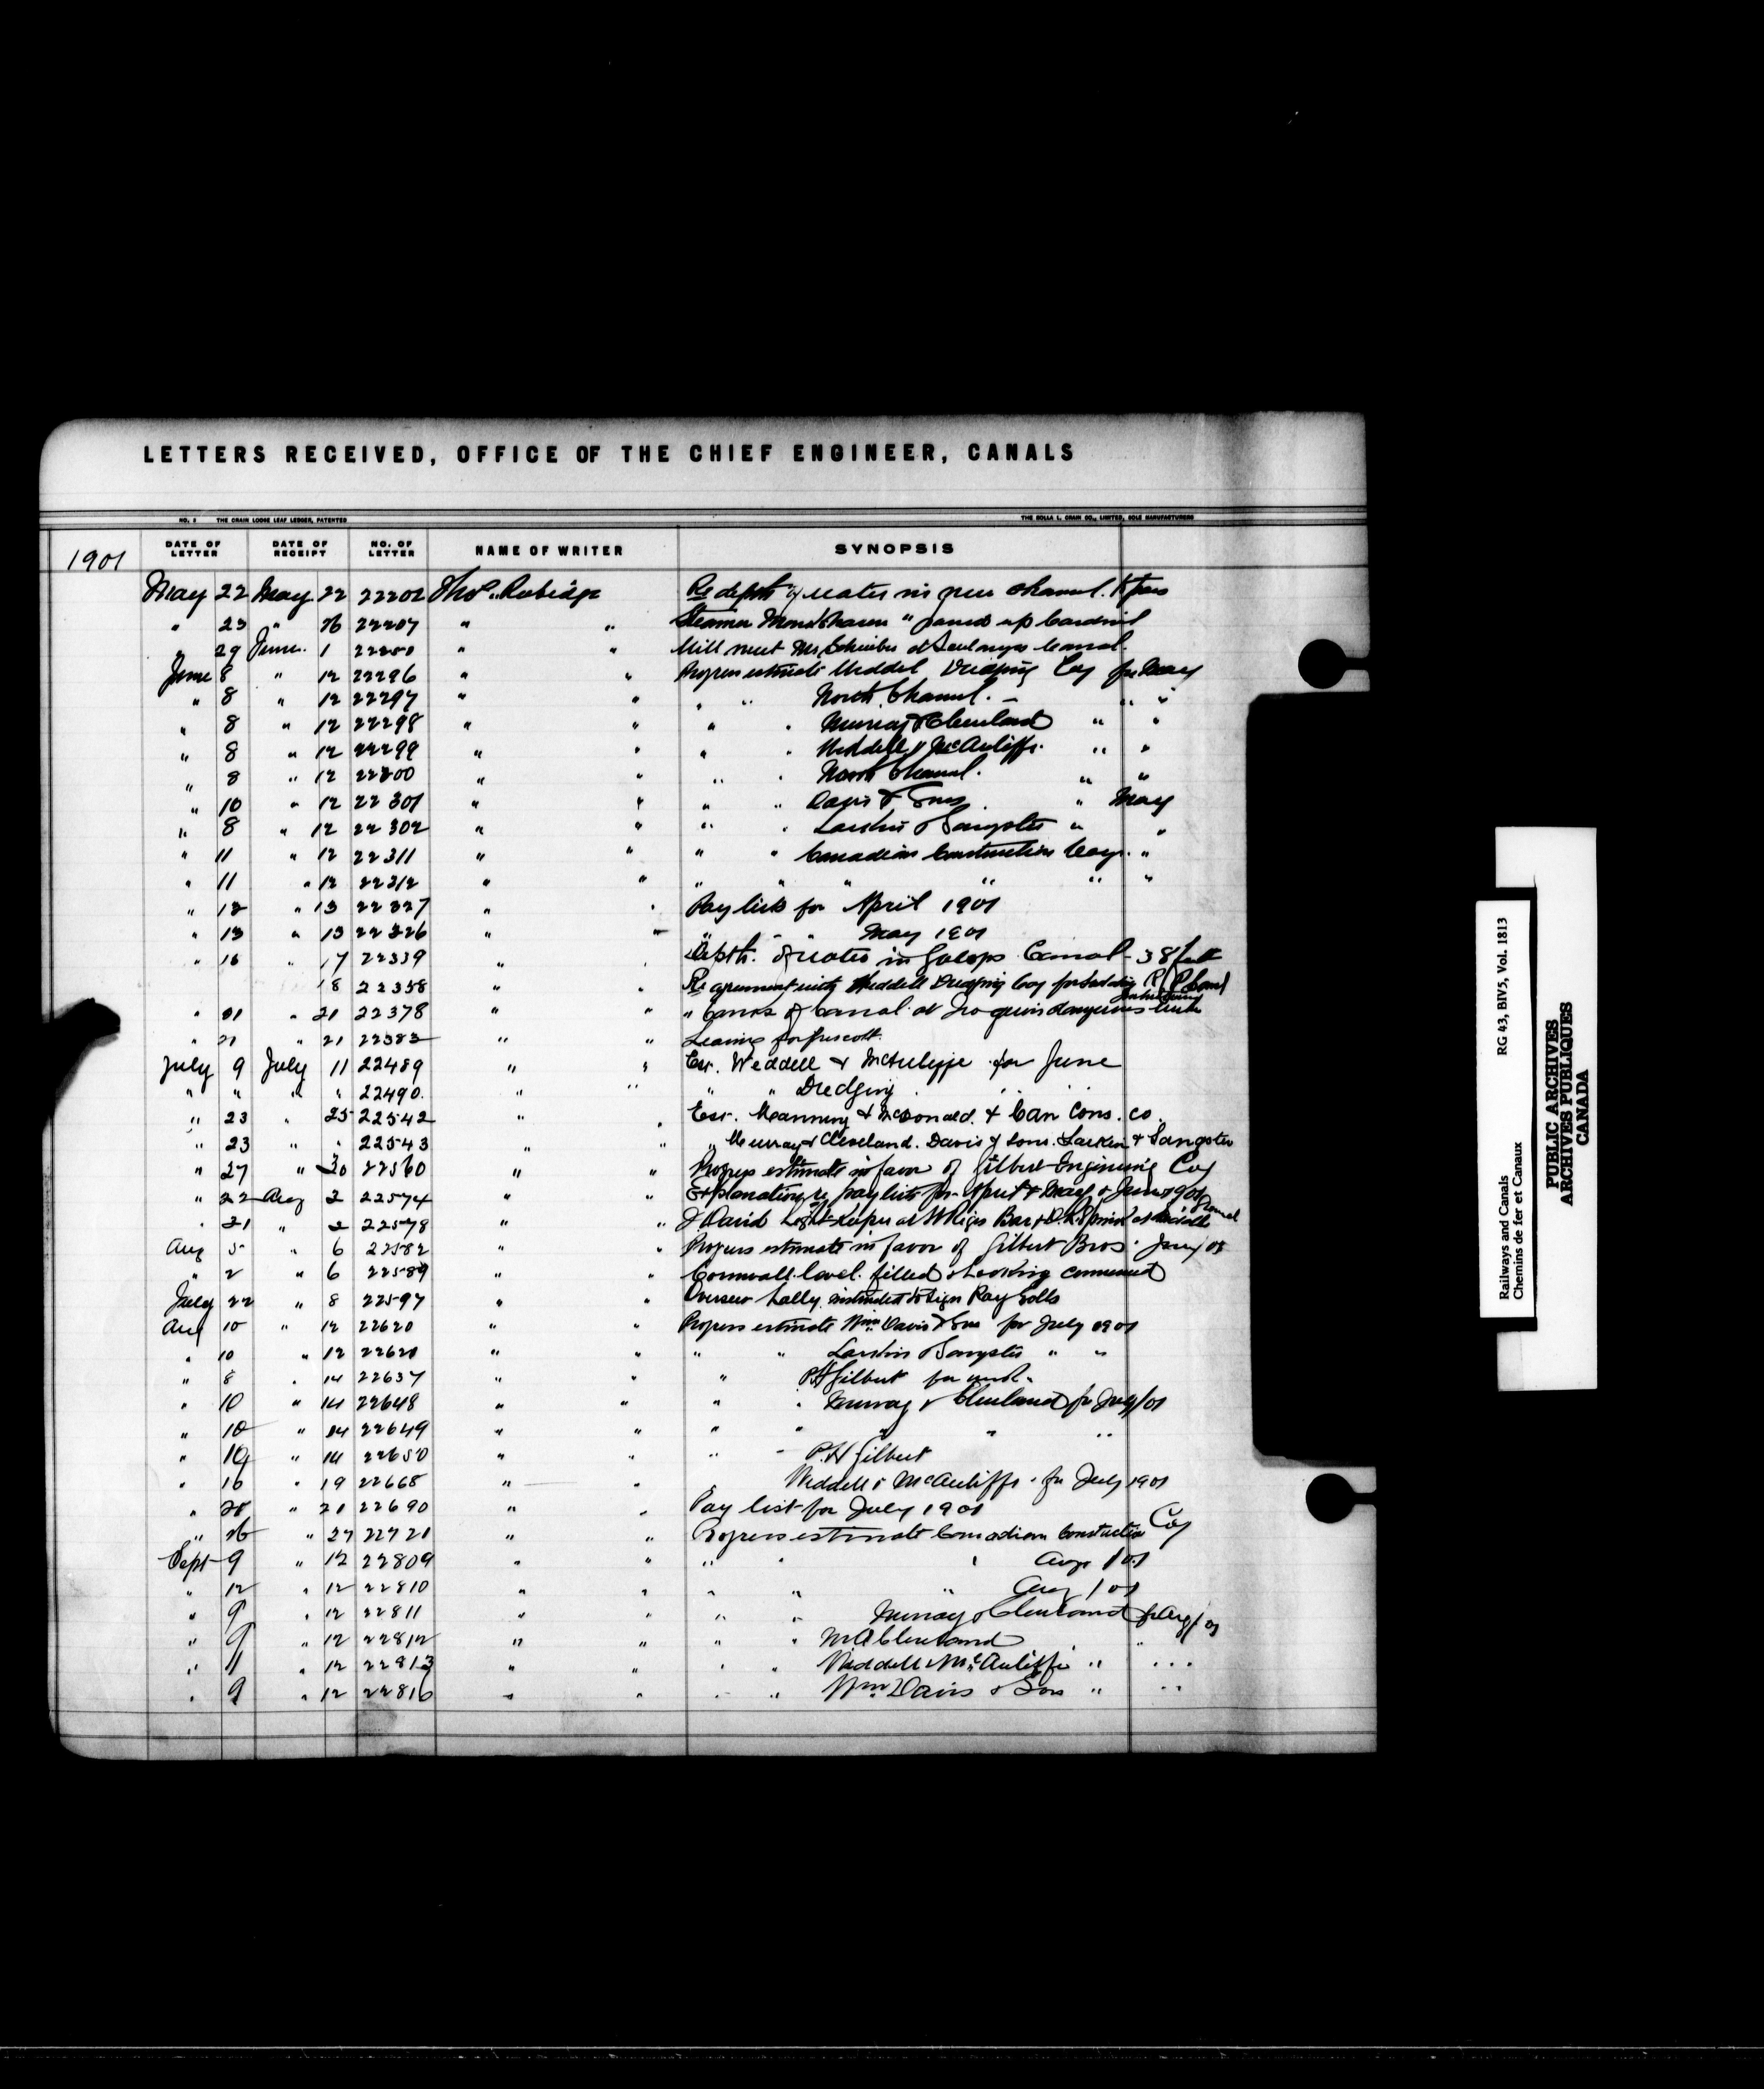 LETTERS RECEIVED, OFFICE OF THE CHIEF ENGINEER, CANALS
NO. 2 THE CRAIN LOOSE LEAF LEDGER, PATENTED THE ROLLA L. CRAIN CO., LIMITED, SOLE MANUFACTURERS
1901 DATE OF LETTER DATE OF RECEIPT NO. OF LETTER NAME OF WRITER SYNOPSIS
May 22 May 22 22202 Thos. Rubidge Re depth of water in new channel.
" 23 " 26 22207 " " Steamer " passed up Cardinal
" 29 June 1 22250 " " Will meet Mr Schreiber at Soulanges Canal.
June 8 " 12 22296 " " Progress estimate Weddel Dredging Coy for May
" 8 " 12 22297 " " " " North Channel. - " "
" 8 " 12 22298 " " " " Murray & Cleveland " "
" 8 " 12 22299 " " " " Weddell & McAuliffe. " "
" 8 " 12 22300 " " " " North Channel. " "
" 10 " 12 22301 " " " " Davis & Sons " May
" 8 " 12 22302 " " " " Larkin & Sangster " "
" 11 " 12 22311 " " " " Canadian Construction Coy. "
" 11 " 12 22312 " " " " " " " "
" 12 " 13 22327 " " Pay lists for April 1901
" 13 " 13 22326 " " " " " May 1901
" 16 " 17 22339 " " Depth of water in Galops Canal - 38 feet
18 22358 " " Re agreement with Weddell Dredging Coy for
" 21 " 21 22378 " " " Banks of Canal at Iroquois dangerous
" 21 " 21 22383 " " Leaving for Prescott.
July 9 July 11 22489 " " Est. Weddell & McAuliffe for June
" " " " 22490. " " " " Dredging " " "
" 23 " 25 22542 " " Est. Manning & McDonald. & Can Cons. Co.
" 23 " " 22543 " " " Murray & Cleveland. Davis & Sons. Larken & Sangster
" 27 " 30 22560 " " Progress estimate in favor of Gilbert Engineering Coy
" 22 Aug 2 22574 " " Explanation re pay lists for April & May & June 1901
" 31 " 2 22578 " " J. David Light Keeper at St Regis Bar &
Aug 5 " 6 22582 " " Progress estimate in favor of Gilbert Bros.
" 2 " 6 22589 " " Cornwall level filled & Locking commenced
July 22 " 8 22597 " " Overseer Lally instructed to sign Pay Rolls
Aug 10 " 12 22620 " " Progress estimate Wm Davis & Sons for July 1901
" 10 " 12 22621 " " " " Larkin & Sangster " "
" 8 " 14 22637 " " " P.H Gilbert for
" 10 " 14 22648 " " " " Murray & Cleveland for July/01
" 10 " 14 22649 " " " " " " "
" 10 " 14 22650 " " " " P.H Gilbert
" 16 " 19 22668 " " " Weddell & McAuliffe - for July 1901
" 20 " 21 22690 " " Pay list for July 1901
" 26 " 27 22721 " " Progress estimate Canadian Construction Coy
Sept 9 " 12 22809 " " " " " Aug /01
" 12 " 12 22810 " " " " " Aug /01
" 9 " 12 22811 " " " " Murray & Cleveland for Aug/01
" 9 " 12 22812 " " " " Cleveland "
" 11 " 12 22813 " " " " Weddell & McAuliffe " "
" 9 " 12 22816 " " " " Wm Davis & Sons " "
Railways and Canals RG 43, BIV5, Vol. 1813
Chemins de fer et Canaux
PUBLIC ARCHIVES
ARCHIVES PUBLIQUES
CANADA